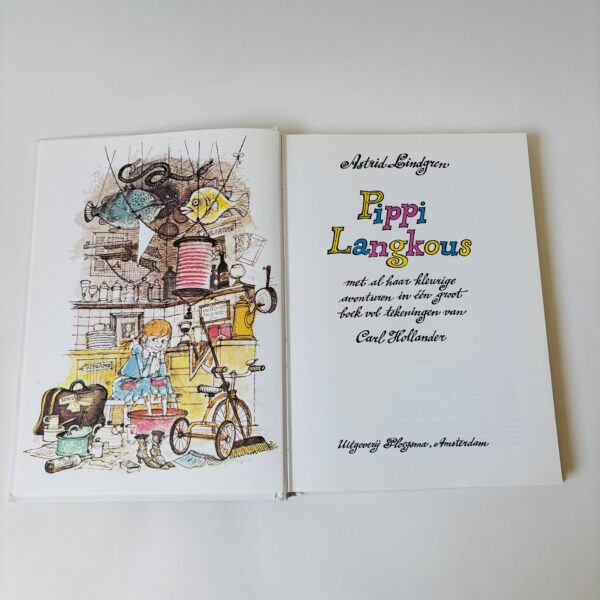 Astrid Lindgren
Pippi
Langkous
met al haar kleurige
avonturen in één groot
boek vol tekeningen van
Carl Hollander
Uitgeverij Ploegsma, Amsterdam